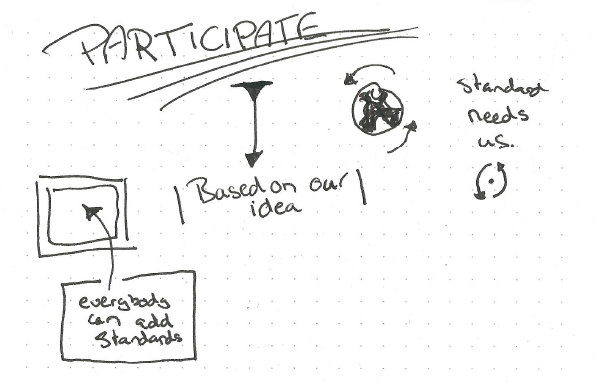 PARTICIPATE
Standard
needs
us.
Based on our
idea
everybody
can add
Standards